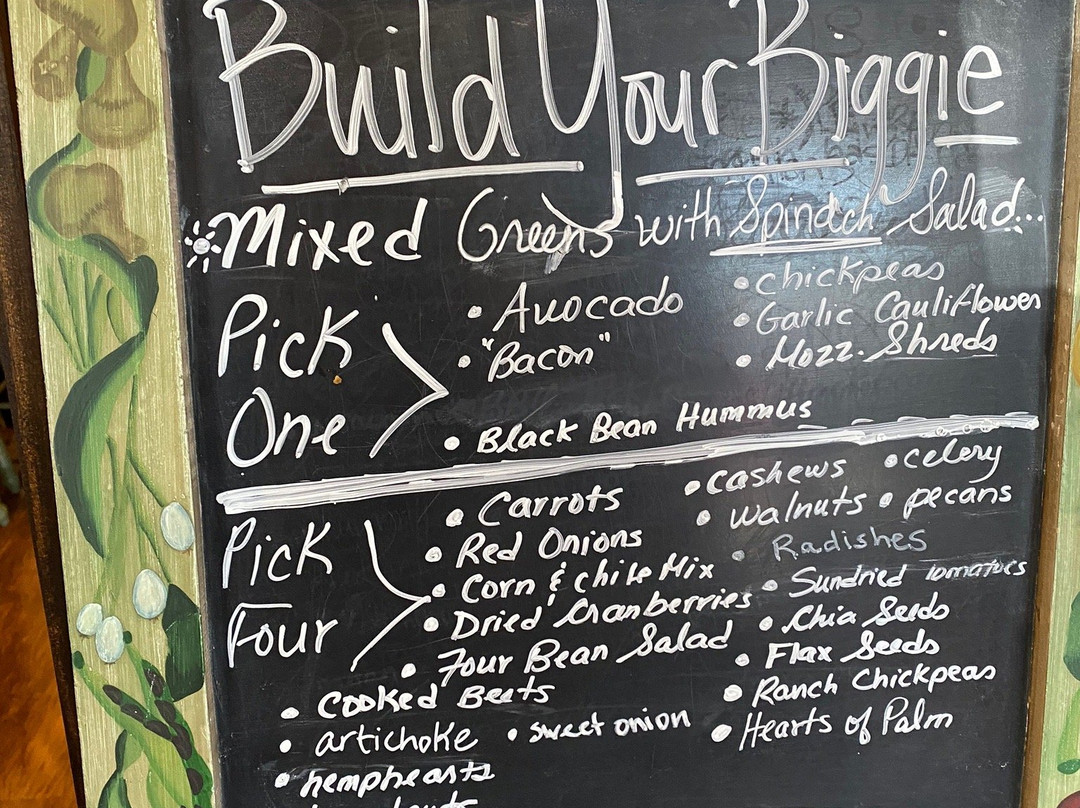 Build Your Biggie
Mixed Greens with Spinach Salad...
Pick One
• Avocado
• "Bacon"
• Black Bean Hummus
• chickpeas
• Garlic Cauliflower
• Mozz. Shreds
Pick Four
• Carrots
• Red Onions
• Corn & chile Mix
• Dried Cranberries
• Four Bean Salad
• Cooked Beets
• artichoke • sweet onion
• hemphearts
• cashews • celery
• walnuts • pecans
• Radishes
• Sundried tomatoes
• Chia Seeds
• Flax Seeds
• Ranch Chickpeas
• Hearts of Palm